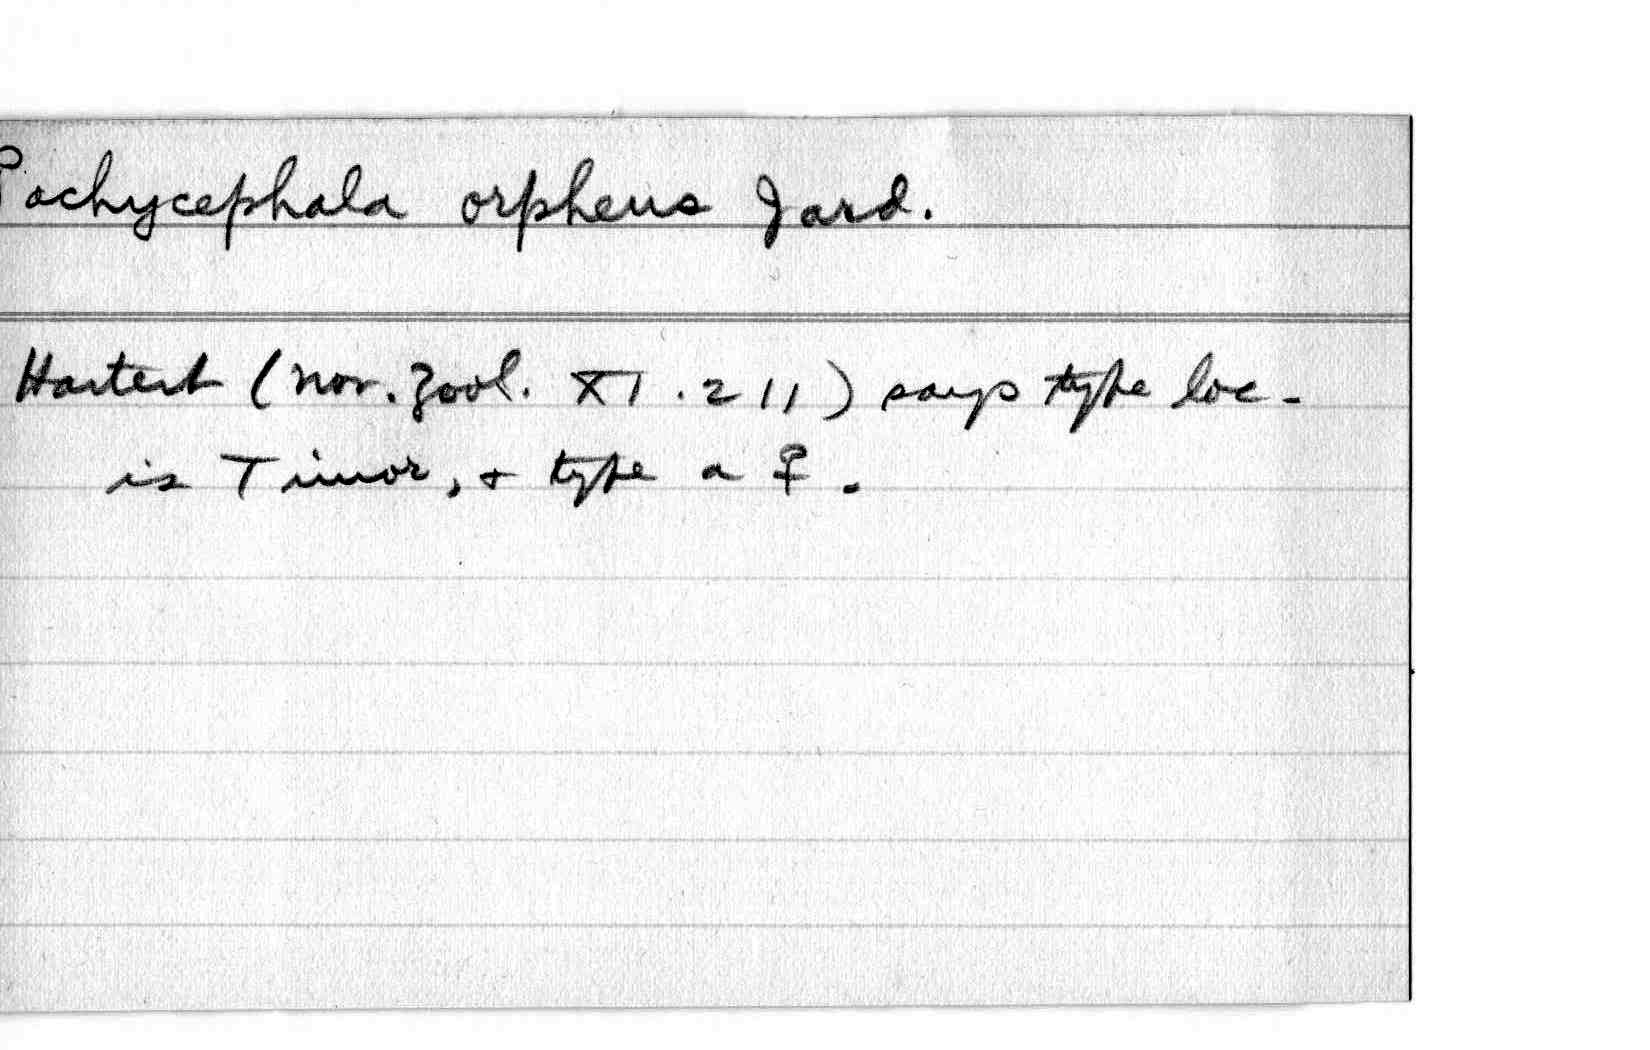 Pachycephala orpheus Jard.
Hartert (Nov. Zool. XI. 211) says type loc.
is Timor, + type a ♀.